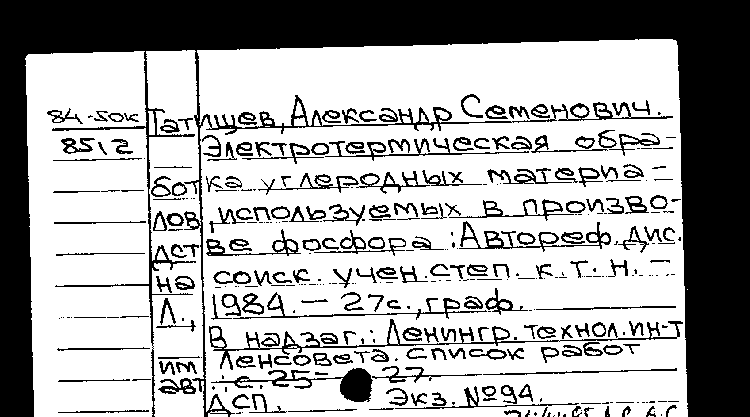 84-50к Татищев, Александр Семенович.
8512 Электротермическая обра-
ботка углеродных материа-
лов, используемых в произво-
дстве фосфора : Автореф. дис.
на соиск. учен. степ. к. т. н. —
Л., 1984. — 27с., граф.
В надзаг.: Ленингр. технол. ин-т
им Ленсовета. Список работ
авт.: с. 25-27.
ДСП. Экз. №94.